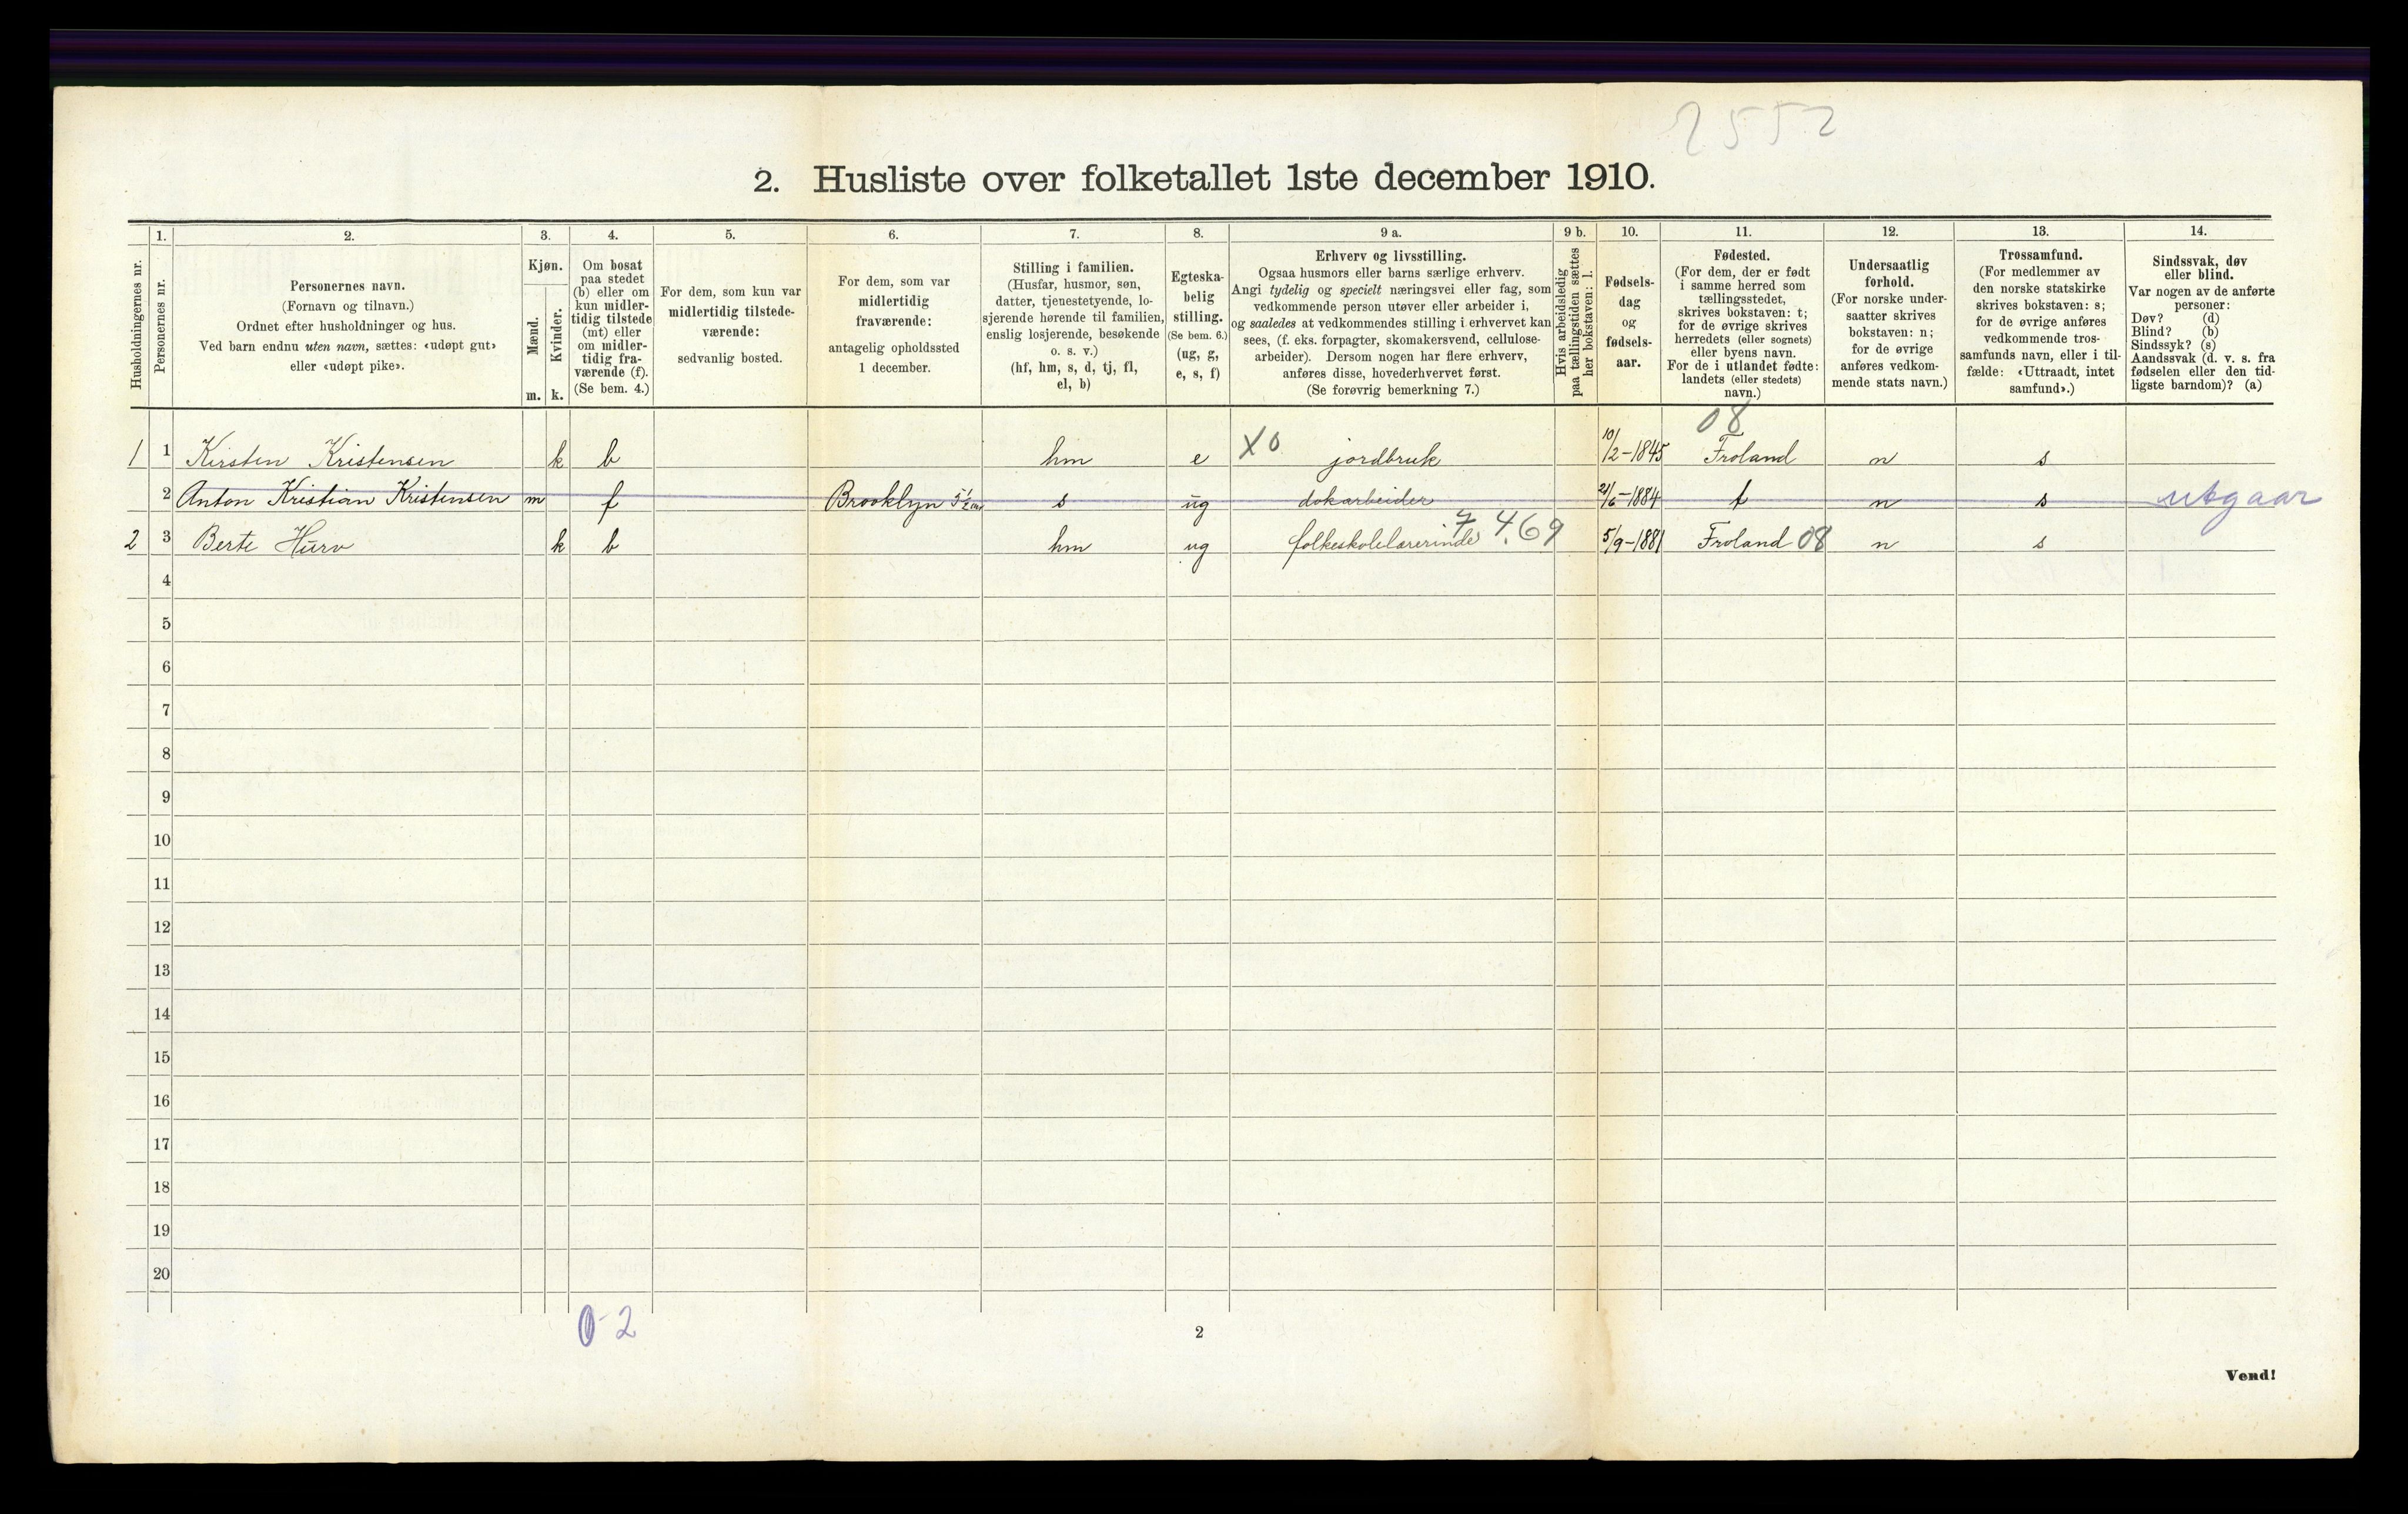 2552
2. Husliste over folketallet 1ste december 1910.
Husholdningernes nr.
1.
Personernes nr.
2.
Personernes navn.
(Fornavn og tilnavn.)
Ordnet efter husholdninger og hus.
Ved barn endnu uten navn, sættes: «udøpt gut»
eller «udøpt pike».
3.
Kjøn.
Mænd.
Kvinder.
m. k.
4.
Om bosat
paa stedet
(b) eller om
kun midler-
tidig tilstede
(mt) eller
om midler-
tidig fra-
værende (f).
(Se bem. 4.)
5.
For dem, som kun var
midlertidig tilstede-
værende:
sedvanlig bosted.
6.
For dem, som var
midlertidig
fraværende:
antagelig opholdssted
1 december.
7.
Stilling i familien.
(Husfar, husmor, søn,
datter, tjenestetyende, lo-
sjerende hørende til familien,
enslig losjerende, besøkende
o. s. v.)
(hf, hm, s, d, tj, fl,
el, b)
8.
Egteska-
belig
stilling.
(Se bem. 6.)
(ug, g,
e, s, f)
9 a.
Erhverv og livsstilling.
Ogsaa husmors eller barns særlige erhverv.
Angi tydelig og specielt næringsvei eller fag, som
vedkommende person utøver eller arbeider i,
og saaledes at vedkommendes stilling i erhvervet kan
sees, (f. eks. forpagter, skomakersvend, cellulose-
arbeider). Dersom nogen har flere erhverv,
anføres disse, hovederhvervet først.
(Se forøvrig bemerkning 7.)
9 b.
Hvis arbeidsledig
paa tællingstiden sættes
her bokstaven: l.
10.
Fødsels-
dag
og
fødsels-
aar.
11.
Fødested.
(For dem, der er født
i samme herred som
tællingsstedet,
skrives bokstaven: t;
for de øvrige skrives
herredets (eller sognets)
eller byens navn.
For de i utlandet fødte:
landets (eller stedets)
navn.)
12.
Undersaatlig
forhold.
(For norske under-
saatter skrives
bokstaven: n;
for de øvrige
anføres vedkom-
mende stats navn.)
13.
Trossamfund.
(For medlemmer av
den norske statskirke
skrives bokstaven: s;
for de øvrige anføres
vedkommende tros-
samfunds navn, eller i til-
fælde: «Uttraadt, intet
samfund».)
14.
Sindssvak, døv
eller blind.
Var nogen av de anførte
personer:
Døv? (d)
Blind? (b)
Sindssyk? (s)
Aandssvak (d. v. s. fra
fødselen eller den tid-
ligste barndom)? (a)
08
1 1 Kirsten Kristensen k b hm e X0 jordbruk 10/2-1845 Froland n s
2 Anton Kristian Kristensen m f Brooklyn 5½ s ug dokarbeider 21/6-1884 t n s utgaar
2 3 Berte Hurv k b hm ug folkeskolelærerinde 7 4.69 5/9-1881 Froland 08 n s
4
5
6
7
8
9
10
11
12
13
14
15
16
17
18
19
20
0-2
2
Vend!